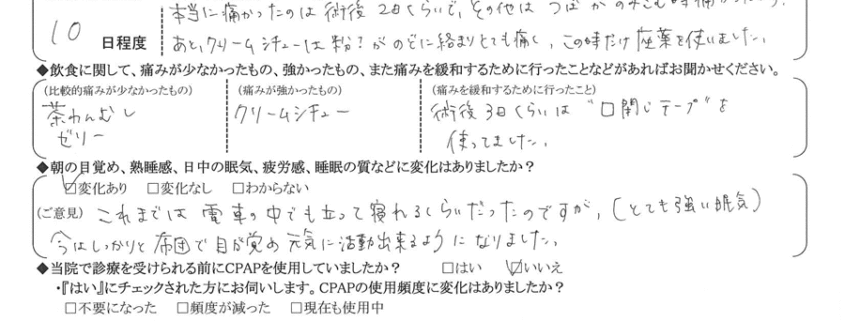 本当に痛かったのは術後2日くらいで、その他はつばがのみこむ時痛かったり、
10 日程度
あと、クリームシチューは粉?がのどに絡まりとても痛く、この時だけ座薬を使いました。
◆飲食に関して、痛みが少なかったもの、強かったもの、また痛みを緩和するために行ったことなどがあればお聞かせください。
(比較的痛みが少なかったもの) (痛みが強かったもの) (痛みを緩和するために行ったこと)
茶わんむし クリームシチュー 術後3日くらいは"口閉じテープ"を
ゼリー 使ってました。
◆朝の目覚め、熟睡感、日中の眠気、疲労感、睡眠の質などに変化はありましたか?
☑変化あり □変化なし □わからない
(ご意見) これまでは電車の中でも立って寝れるくらいだったのですが、(とても強い眠気)
今はしっかりと布団で目が覚め元気に活動出来るようになりました。
◆当院で診療を受けられる前にCPAPを使用していましたか? □はい ☑いいえ
・『はい』にチェックされた方にお伺いします。CPAPの使用頻度に変化はありましたか?
□不要になった □頻度が減った □現在も使用中